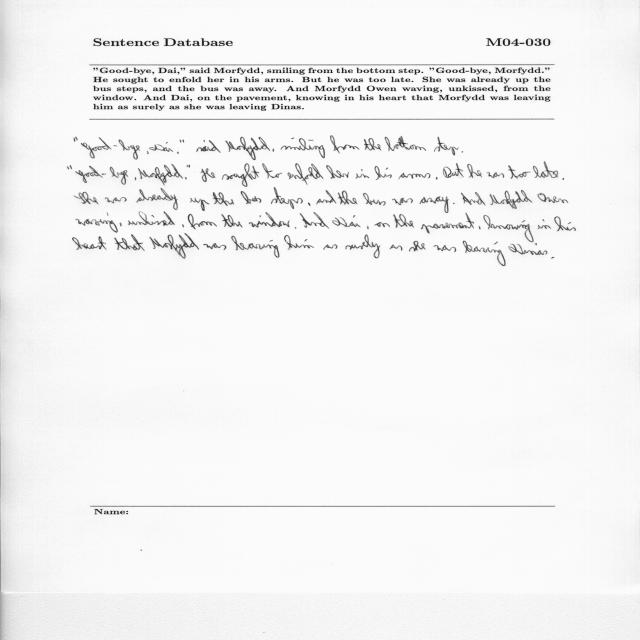 Sentence Database M04-030
"Good-bye, Dai," said Morfydd, smiling from the bottom step. "Good-bye, Morfydd."
He sought to enfold her in his arms. But he was too late. She was already up the
bus steps, and the bus was away. And Morfydd Owen waving, unkissed, from the
window. And Dai, on the pavement, knowing in his heart that Morfydd was leaving
him as surely as she was leaving Dinas.
"Good-bye, Dai," said Mofydd, smiling from the bottom step.
"Good-bye, Mofydd." He sought to enfold her in his arms. But he was too late.
She was already up the bus steps, and the bus was away. And Mofydd Owen
waving, unkissed, from the window. And Dai, on the pavement, knowing in his
heart that Mofydd was leaving him as surely as she was leaving Dinas.
Name: